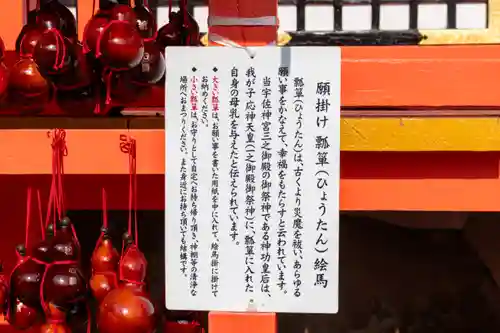 願掛け 瓢箪（ひょうたん）絵馬
瓢箪（ひょうたん）は、古くより災魔を祓い、あらゆる
願い事をかなえて、幸福をもたらすと云われています。
当宇佐神宮三之御殿の御祭神である神功皇后は、
我が子応神天皇（一之御殿御祭神）に、瓢箪に入れた
自身の母乳を与えたと伝えられています。
◆大きい瓢箪は、お願い事を書いた用紙を中に入れて、絵馬掛に掛けて
お納めください。
◆小さい瓢箪は、お守りとして自宅へお持ち帰り頂き、神棚等の清浄な
場所へおまつりください。また身近にお持ち頂いても結構です。